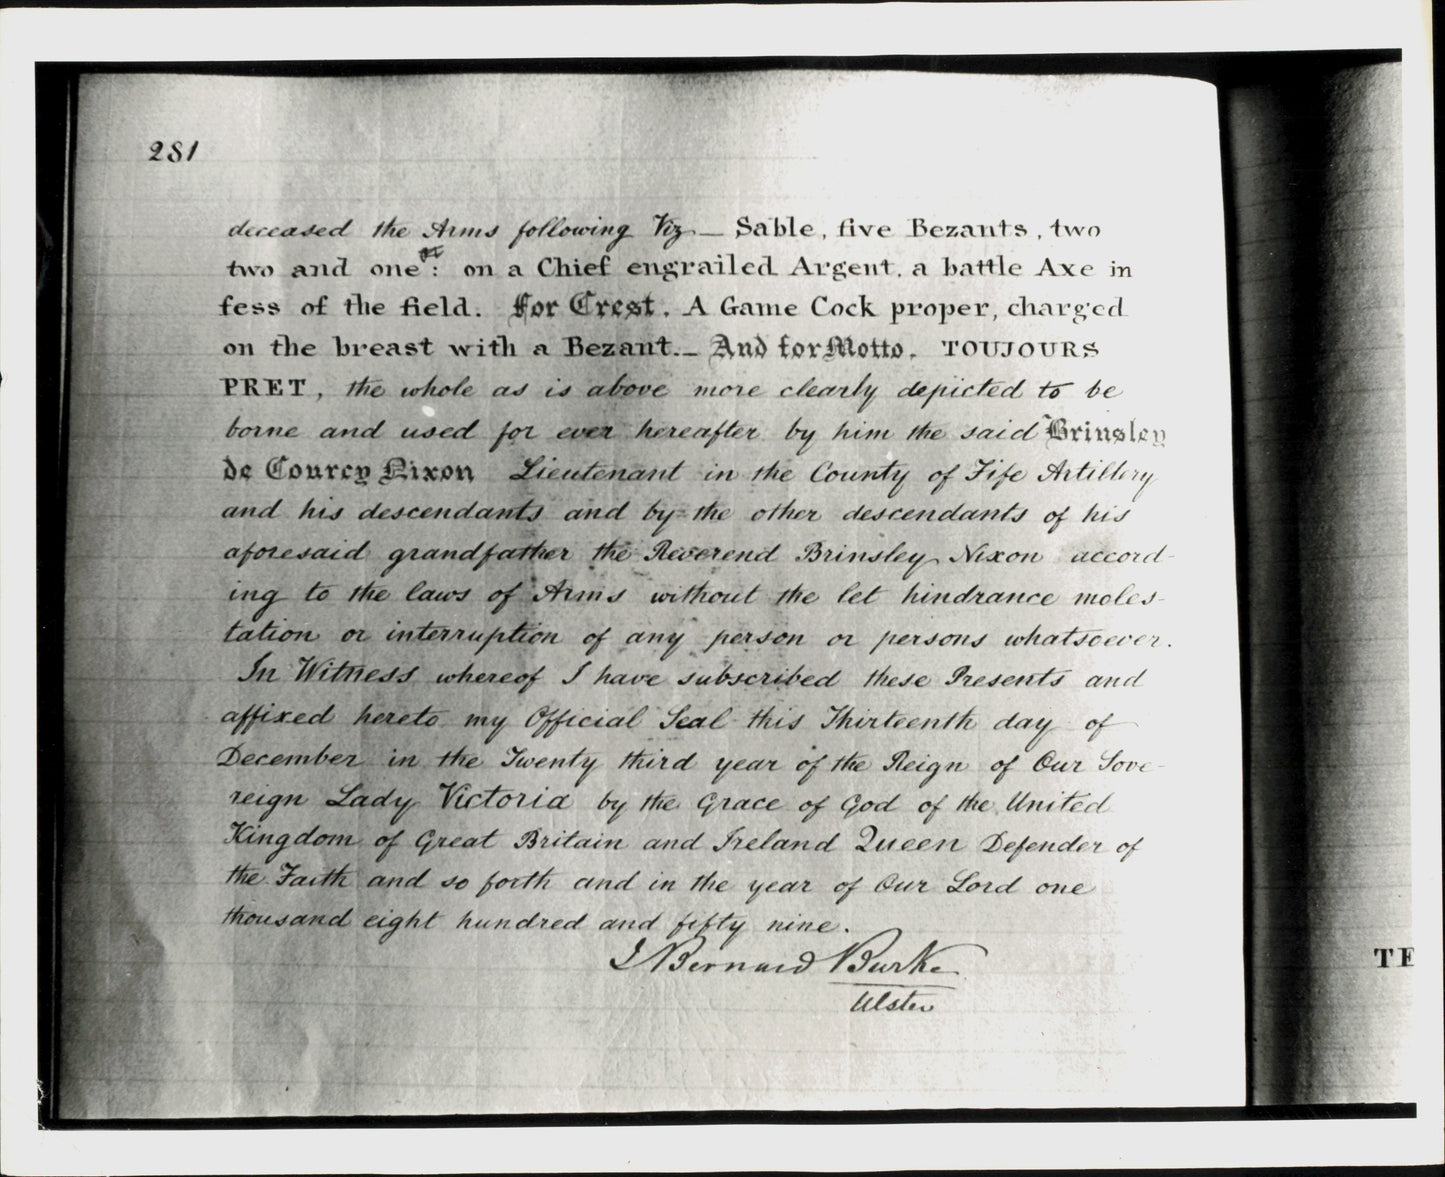 281
deceased the Arms following Viz — Sable, five Bezants, two
two and one: on a Chief engrailed Argent, a battle Axe in
fess of the field. For Crest. A Game Cock proper, charged
on the breast with a Bezant. — And for Motto. TOUJOURS
PRET, the whole as is above more clearly depicted to be
borne and used for ever hereafter by him the said Brinsley
de Courcy Nixon Lieutenant in the County of Fife Artillery
and his descendants and by the other descendants of his
aforesaid grandfather the Reverend Brinsley Nixon accord-
ing to the laws of Arms without the let hindrance moles-
tation or interruption of any person or persons whatsoever.
In Witness whereof I have subscribed these Presents and
affixed hereto my Official Seal this Thirteenth day of
December in the Twenty third year of the Reign of Our Sove-
reign Lady Victoria by the Grace of God of the United
Kingdom of Great Britain and Ireland Queen Defender of
the Faith and so forth and in the year of Our Lord one
thousand eight hundred and fifty nine.
J Bernard Burke
Ulster
TE